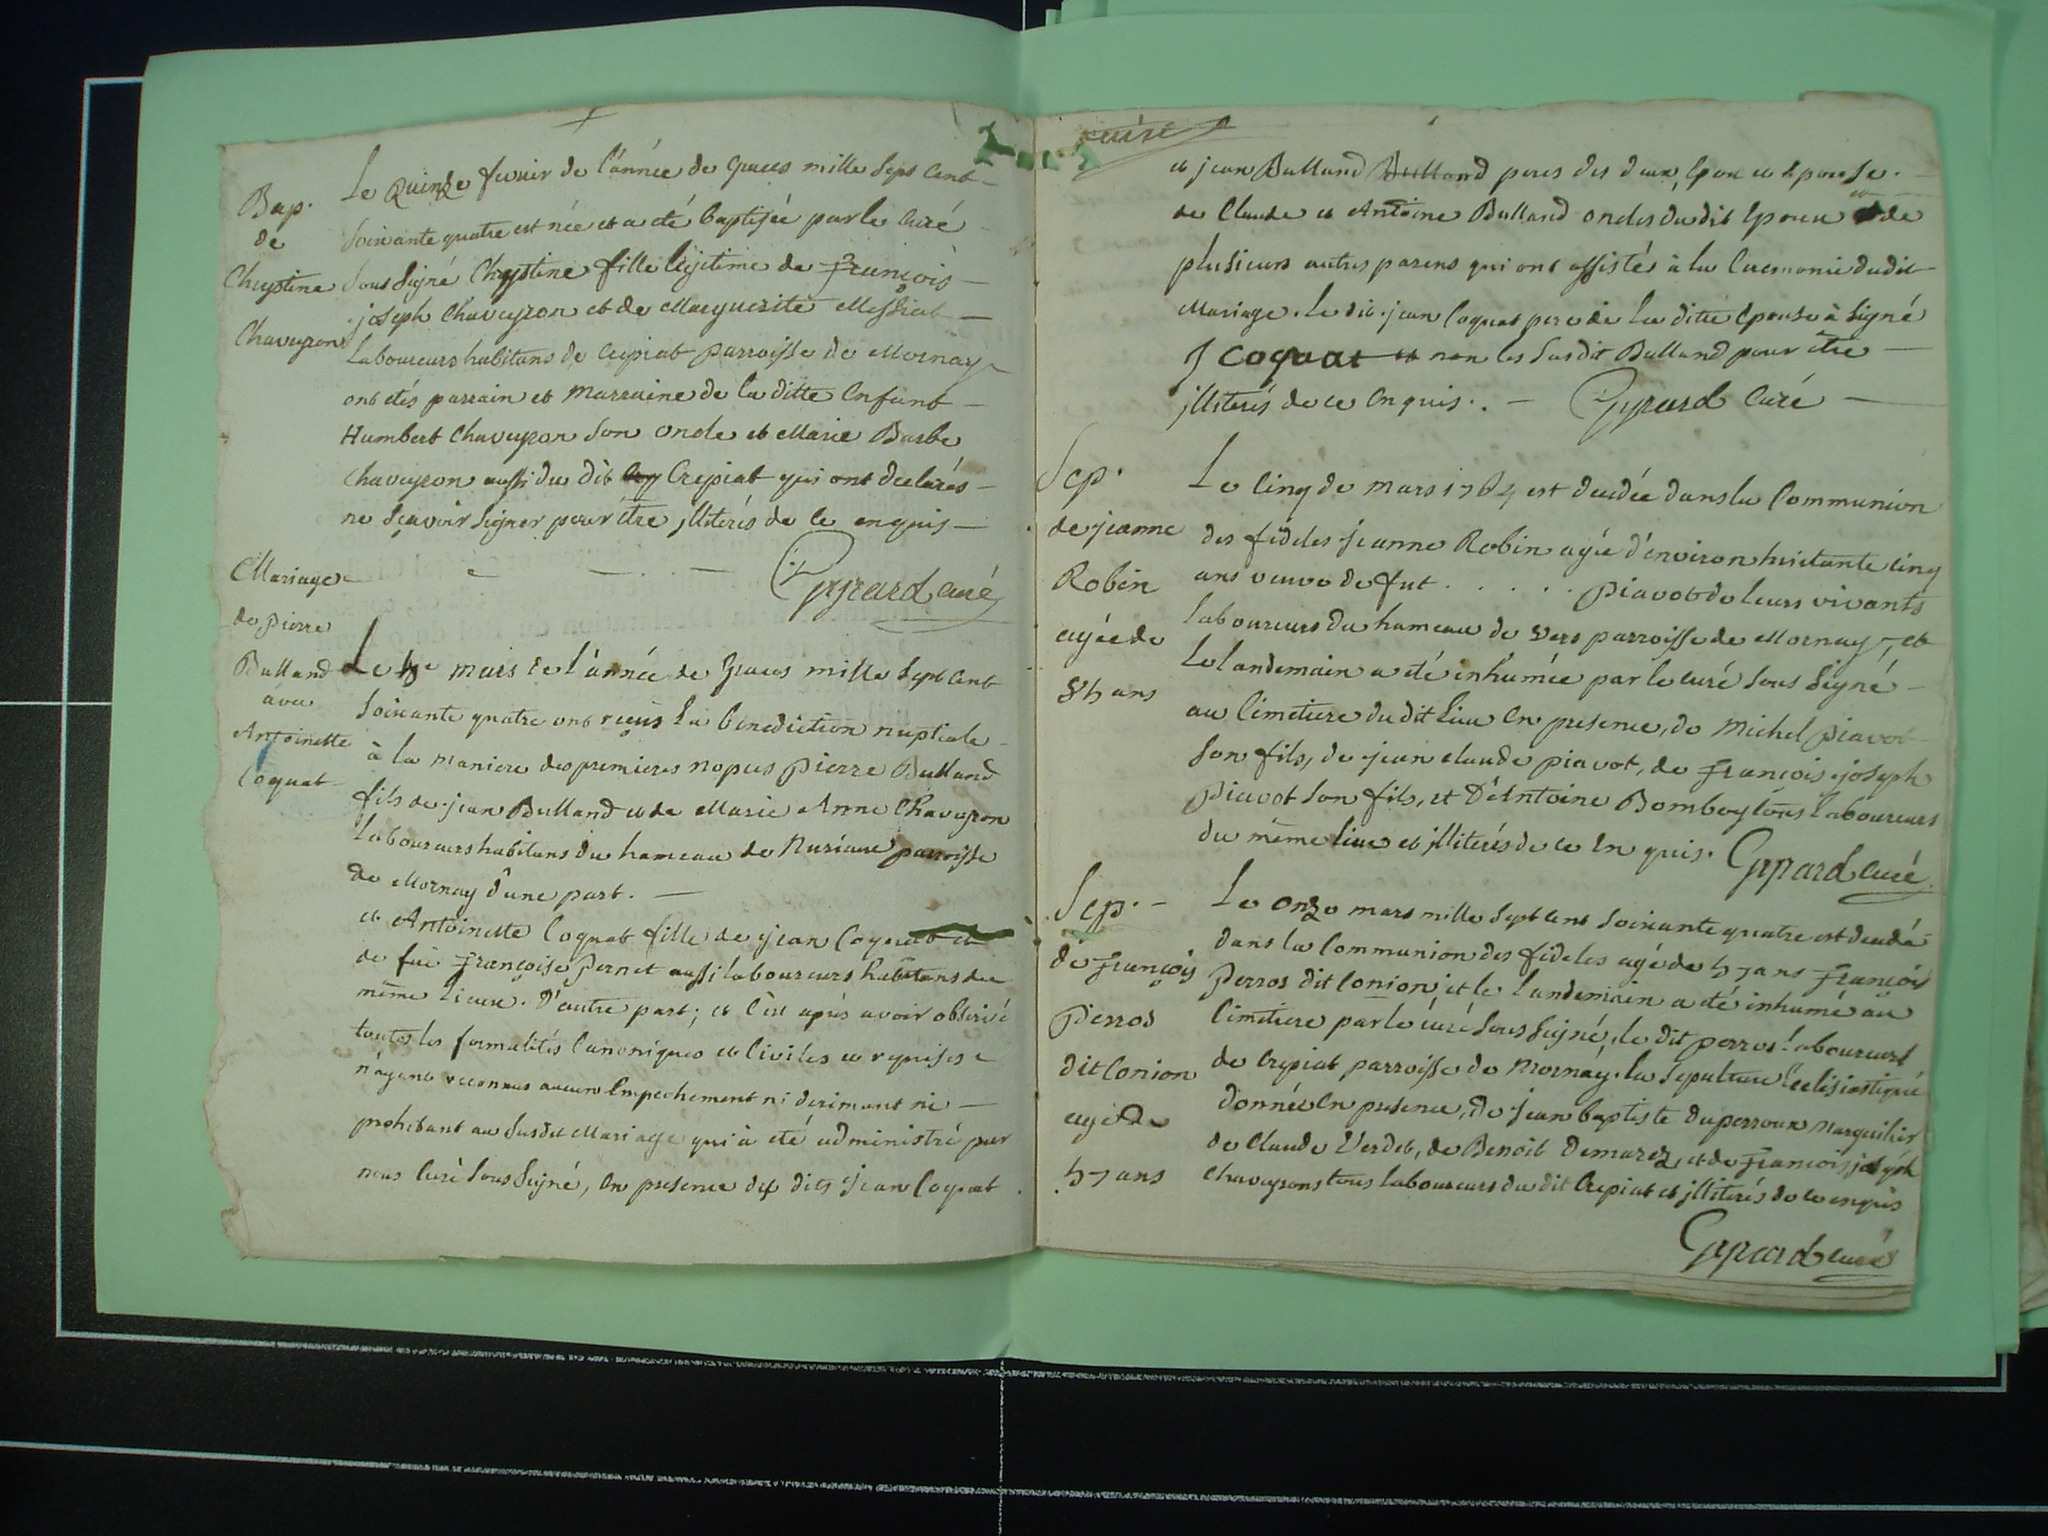 Bap.
de
Chrystine
Chaveyron
Le Quinze fevrier de l'année de graces mille sept cent
soixante quatre est née et a été baptisée par le curé
sous signé Chrystine fille légitime de François
joseph Chaveyron et de Marguerite Messiat
laboureurs habitans de Crepiat parroisse de Mornay
ont étés parrain et marraine de la ditte enfant
Humbert Chaveyron son oncle et Marie Barbe
Chaveyron aussi du dit Crepiat qui ont declarés
ne sçavoir signer pour être jlliterés de ce enquis
Gyrard curé
Mariage
de pierre
Balland
avec
Antoinette
Coquat
Le mars de l'année de graces mille sept cent
soixante quatre ont reçus la benediction nuptiale
à la maniere des premieres nopces pierre Balland
fils de jean Balland et de Marie Anne Chaveyron
laboureurs habitans du hameau de Nurieux parroisse
de Mornay d'une part.
et Antoinette Coquat fille de jean Coquat et
de fue Françoise Pernet aussi laboureurs habitans du
même lieux. D'autre part; et c'est après avoir observé
toutes les formalités canoniques et civiles et requises
n'ayant reconnus aucun empechement ni dirimant ni
prohibant au susdit Mariage qui à été administré par
nous curé sous signé, en presence des dits jean Coquat
curé
et jean Balland Balland peres des deux epoux et epouse.
de Claude et Antoine Balland oncles du dit epoux et de
plusieurs autres parens qui ont assistés à la ceremonie dudit
Mariage. le dit jean Coquat pere de la ditte epouse à signé
J coquat et non les susdit Balland pour être
jlliterés de ce enquis. Gyrard curé
Sep.
de jeanne
Robin
agée de
85 ans
Le cinq de mars 1764 est decedée dans la Communion
des fideles jeanne Robin agée d'environ huitante cinq
ans veuve de fut . . . . . piavot de leurs vivants
laboureurs du hameau de vers parroisse de Mornay, et
le landemain a été inhumée par le curé sous signé
au Cimetiere du dit lieu en presence, de Michel piavot
son fils, de jean claude piavot, de François joseph
piavot son fils, et D'Antoine Bomboy tous laboureurs
du même lieu et jlliterés de ce en quis. Gyrard curé
Sep.
de François
perros
dit Conion
agé de
57 ans
Le onze mars mille sept cent soixante quatre est decedé
dans la Communion des fideles agé de 57 ans François
perros dit Conion et le landemain a été inhumé au
Cimetiere par le curé sous signé, le dit perros laboureurs
de Crepiat parroisse de Mornay. la sepulture Ecclesiastique
donnée en presence, de jean baptiste duperroux marguilier
de Claude Verdet, de Benoit Demarez, et de François joseph
Chaveyrons tous laboureurs du dit Crepiat et jlliterés de ce enquis
Gyrard curé